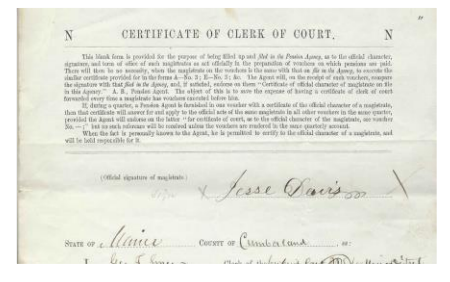 N CERTIFICATE OF CLERK OF COURT. N
This blank form is provided for the purpose of being filled up and filed in the Pension Agency, as to the official character,
signature, and term of office of such magistrates as act officially in the preparation of vouchers on which pensions are paid.
There will then be no necessity, when the magistrate on the vouchers is the same with that on file in the Agency, to execute the
similar certificate provided for in the forms A—No. 3; E—No. 3; &c. The Agent will, on the receipt of such vouchers, compare
the signature with that filed in the Agency, and, if satisfied, endorse on them "Certificate of official character of magistrate on file
in this Agency." A. B., Pension Agent. The object of this is to save the expense of having a certificate of clerk of court
forwarded every time a magistrate has vouchers executed before him.
If, during a quarter, a Pension Agent is furnished in one voucher with a certificate of the official character of a magistrate,
then that certificate will answer for and apply to the official acts of the same magistrate in all other vouchers in the same quarter,
provided the Agent will endorse on the latter "for certificate of court, as to the official character of the magistrate, see voucher
No. —;" but no such reference will be received unless the vouchers are rendered in the same quarterly account.
When the fact is personally known to the Agent, he is permitted to certify to the official character of a magistrate, and
will be held responsible for it.
(Official signature of magistrate)
Jesse Davis
STATE OF Maine COUNTY OF Cumberland, ss:
I,